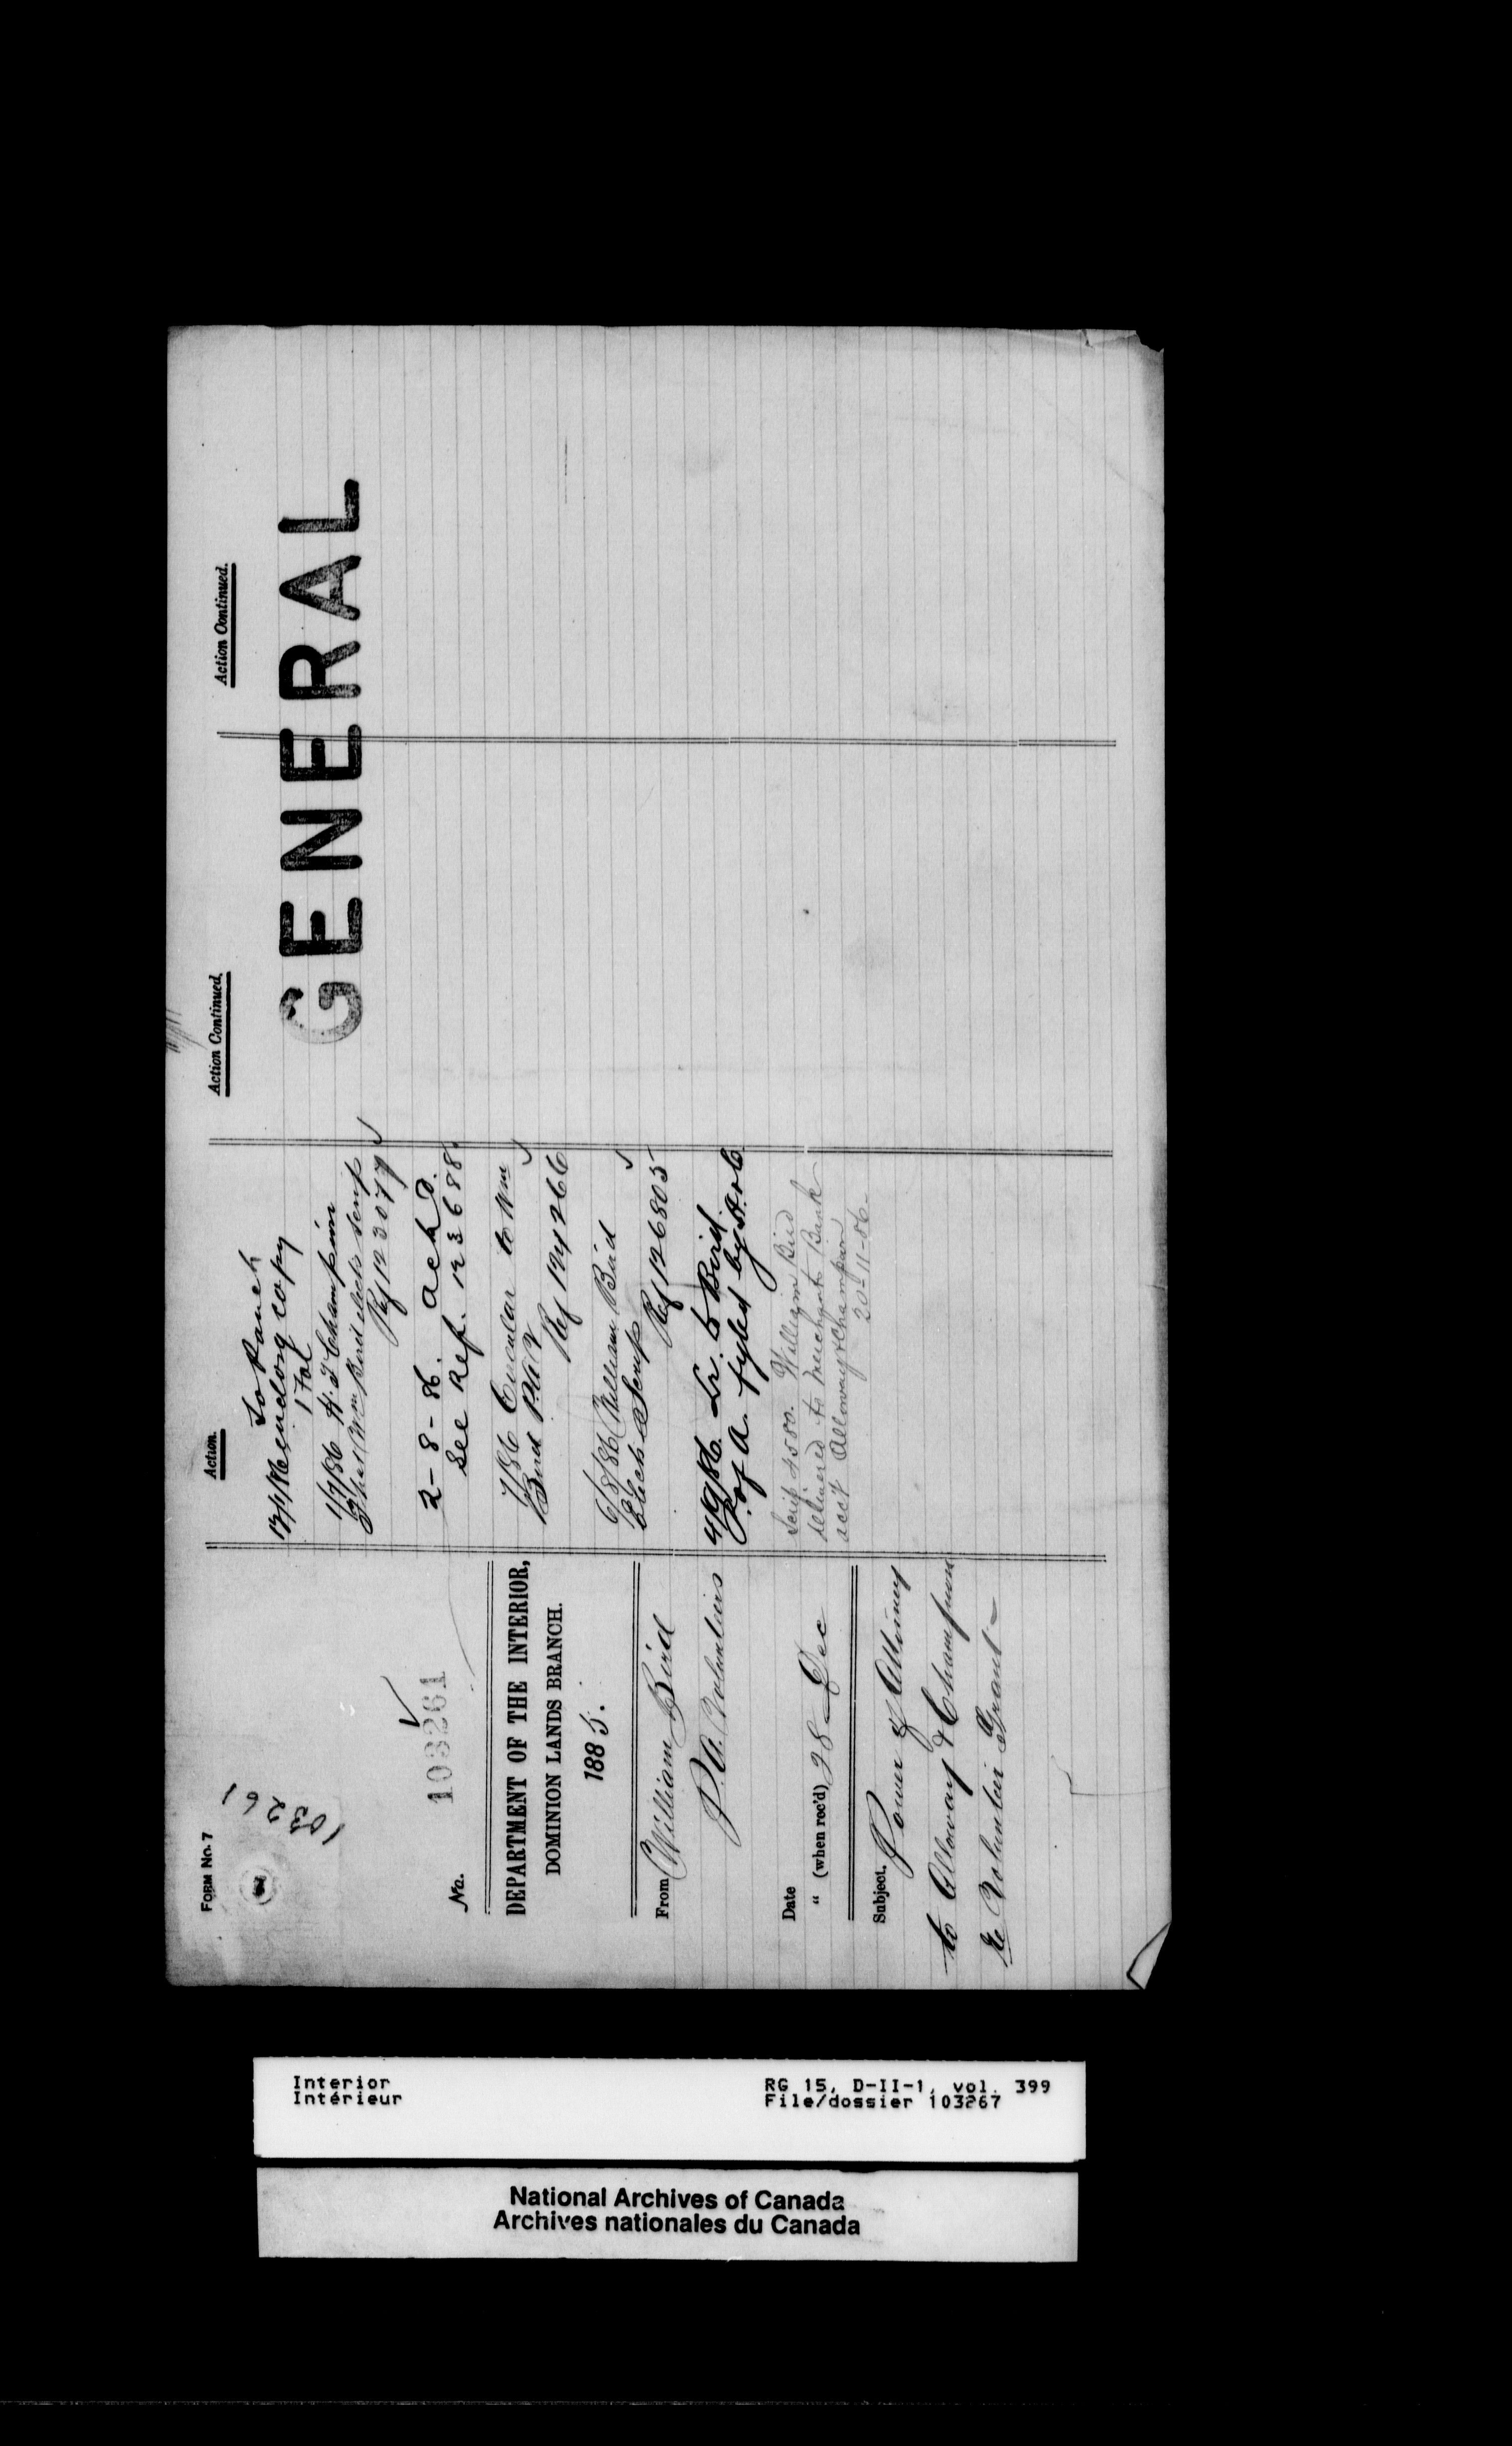 FORM No. 7
103261
103261
No.
DEPARTMENT OF THE INTERIOR,
DOMINION LANDS BRANCH.
1885.
From William Bird
P.A. Volunteers
Date
" (when rec'd) 28 Dec
Subject. Power of Attorney
to Alloway & Champion
re Volunteer Grant
Action.
To Ranch
enclosg copy
1 fol
1/7/86 H. J. Champion
that Wm Bird elects scrip
Ref 123077
2-8-86. Ackd.
See Ref. 123688
7/86 Circular to Wm
Bird P.A.V
Ref 124266
6/8/86 William Bird
Elects Scrip
Ref 126805
4/9/86. Lr. to Bird.
P. of A. fyled by A. & C.
Scrip 4580. William Bird
delivered to Merchants Bank
acc't Alloway & Champion
30-11-86-
Action Continued.
Action Continued.
GENERAL
Interior
Intérieur
RG 15, D-II-1, vol. 399
File/dossier 103267
National Archives of Canada
Archives nationales du Canada